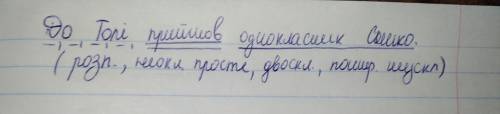 До Толі прийшов однокласник Сашко.
(розп., неокл. просте, двоскл., пошир. неускл)